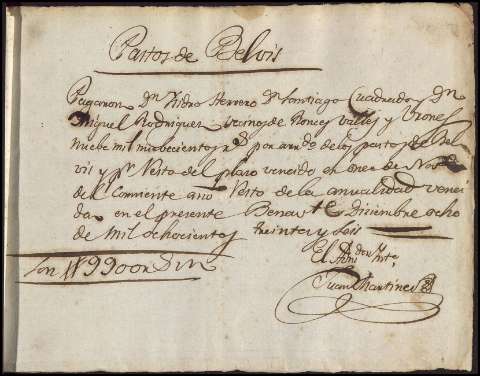 Pastos de Belvis
Pagaron Dn Isidro Herrero Dn Santiago Cuadrado Dn
Miguel Rodriguez vecinos de Roncesvalles y Briones
Nuebe mil nuevecientos rs. por arrdo. de los pastos de Bel
vis y pr. resto del plazo vencido en once de Nobe
del Corriente año resto de la anualidad venci
da en el presente Benavte Diciembre ocho
de mil ochocientos treinta y seis
El Admdor Into,
Son 9900 rs
Juan Martinez